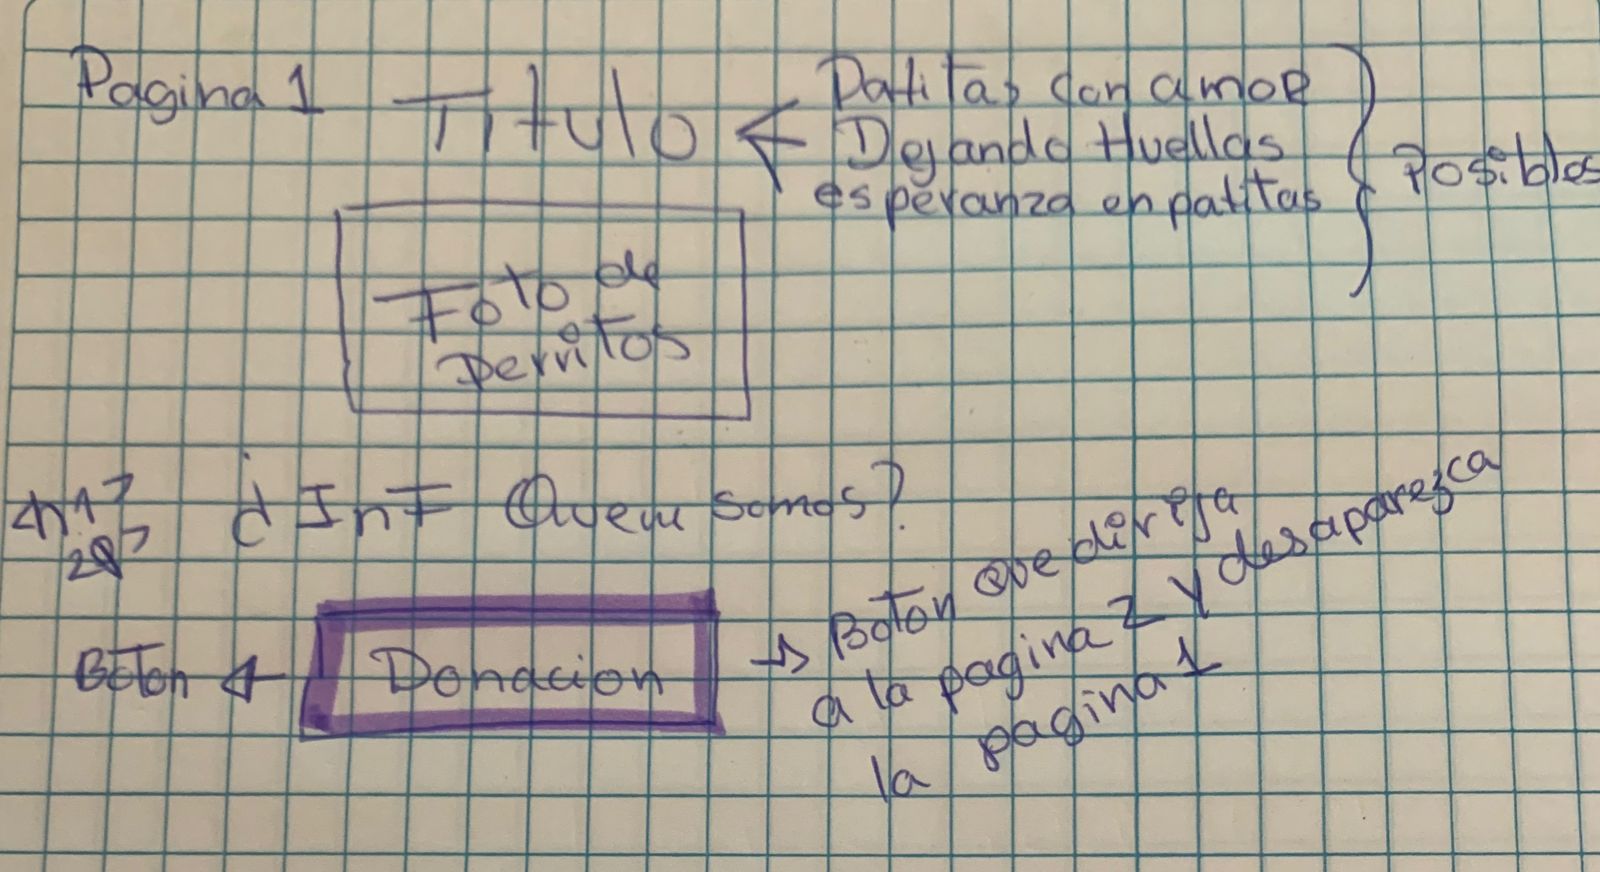 Pagina 1
Titulo
Patitas con amor
Dejando Huellas
esperanza en patitas
Posibles
Foto de
perritos
¿ Inf Quem somos?
Boton
Donacion
Boton que direja
a la pagina 2 y desaparezca
la pagina 1